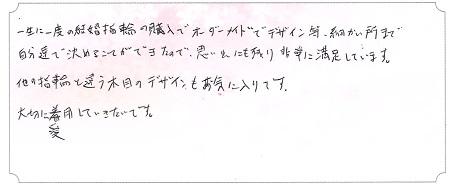 一生に一度の結婚指輪の購入でオーダーメイドでデザイン等、細かい所まで
自分達で決めることができたので、思い出にも残り非常に満足しています。
他の指輪と違う木目のデザインもお気に入りです。
大切に着用していきたいです。
愛